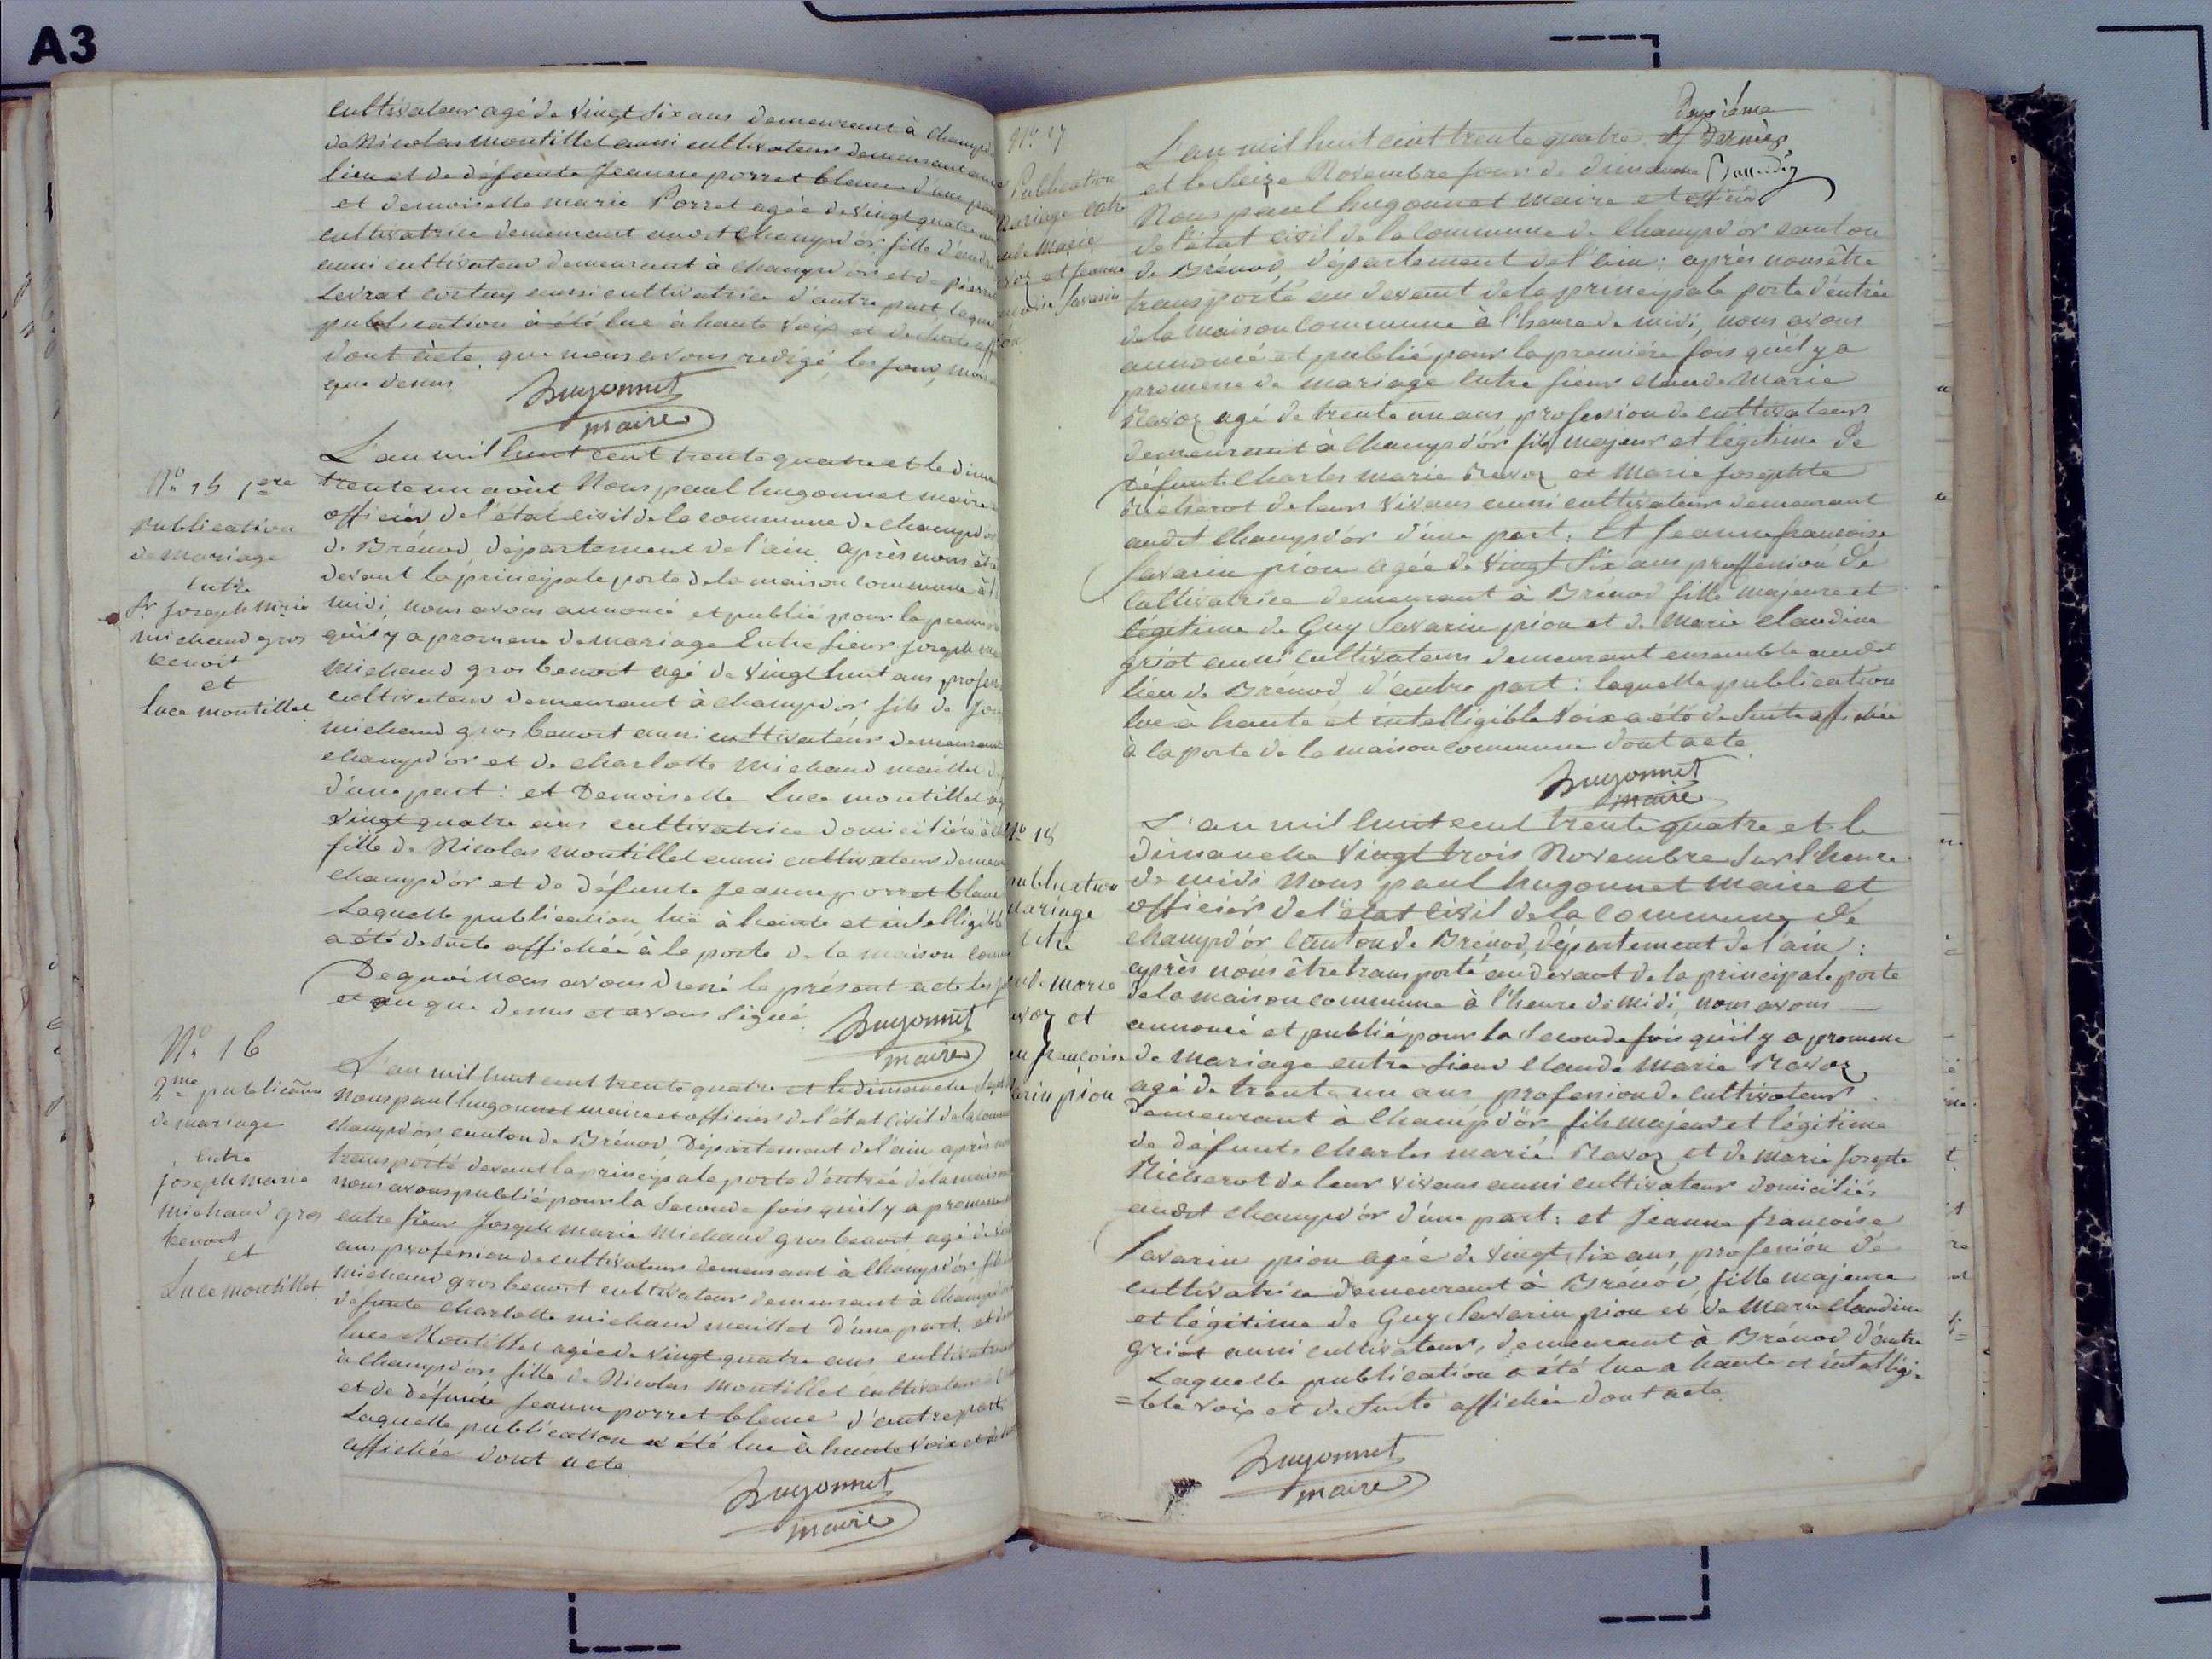 A3
cultivateur agé de vingt six ans demeurant à champd
de Nicolas montillet aussi cultivateur demeurant aud
lieu et de défunte Jeanne porret blanc d'une par
et demoiselle marie Porret agée de vingt quatre an
cultivatrice demeurant audt Champd'or fille d'andr
aussi cultivateur demeurant à champd'or et de pierr
Levrat aussi cultivatrice d'autre part laque
publication à été lue à haute voix et de suite aff
dont acte que nous avons redigé les jour, mois
que dessus
hugonnet
maire
No 15 1ere
publication
de mariage
entre
Sr Joseph marie
michaud gros
benoit
et
luce montillet
L'an mil huit cent trente quatre et le dima
trente un août Nous paul hugonnet maire
officier de l'état civil de la commune de champd'or
de Brénod département de l'ain après nous êtr
devant la principale porte de la maison commune à l'
midi, nous avons annoncé et publié pour la premi
qu'il y a promesse de mariage Entre sieur joseph ma
michaud gros benoit agé de vingt huit ans profes
cultivateur demeurant à champd'or fils de Jos
michaud gros benoit aussi cultivateur demeurant
champd'or et de charlotte michaud maillet d
d'une part : et Demoiselle Luce montillet ag
vingt quatre ans cultivatrice domiciliée à ch
fille de Nicolas montillet aussi cultivateur demeu
champd'or et de défunte Jeanne porret blanc
Laquelle publication lue à haute et intelligible
a été de suite affichée à la porte de la maison comm
De quoi nous avons dressé le présent acte les jo
et an que dessus et avons signé
hugonnet
maire
No 16
2me publication
de mariage
entre
joseph marie
michaud gros
benoit
et
Luce montillet
L'an mil huit cent trente quatre et le dimanche sept
Nous paul hugonnet maire et officier de l'état civil de la comm
champd'or canton de Brénod, Département de l'ain après no
transporté devant la principale porte d'entrée de la maison
nous avons publié pour la seconde fois qu'il y a promesse
entre sieur Joseph marie Michaud gros benoit agé de vin
ans profession de cultivateur demeurant à Champd'or fils
michaud gros benoit cultivateur demeurant à champd'o
defunte charlotte michaud maillet d'une part, et
luce Montillet agée de vingt quatre ans cultivatri
à champd'or, fille de Nicolas Montillet cultivateur
et de défunte Jeanne porret blanc d'autre part
Laquelle publication a été lue à haute voix et
affichée dont acte.
hugonnet
maire
No 17
Publication
Mariage entre
ude Marie
voz et Jeanne
çoise Savarin
on
L'an mil huit cent trente quatre
et le Seize Novembre jour de dimanche
Nous paul hugonnet maire et officier
de l'état civil de la Commune de Champd'or canton
de Brénod, département de l'ain : après nous être
transporté au devant de la principale porte d'entrée
de la maison commune à l'heure de midi, nous avons
annoncé et publié pour la première fois qu'il y a
promesse de mariage entre sieur claude Marie
Ravoz agé de trente un ans profession de cultivateur
demeurant à Champd'or fils majeur et légitime de
défunts Charles marie Ravoz et Marie Josephte
Richerot de leur vivans aussi cultivateurs demeurant
audit Champd'or d'une part. Et Jeanne françoise
Savarin pion agée de Vingt Six ans proffession de
Cultivatrice demeurant à Brénod fille majeure et
légitime de Guy Savarin pion et de Marie Claudine
griot aussi cultivateurs demeurant ensemble audit
lieu de Brénod d'autre part : laquelle publication
lue à haute et intelligible voix a été de suite affichée
à la porte de la maison commune dont acte.
hugonnet
maire
No 18
ublication
ariage
tre
ude marie
voz et
ne françoise
arin pion
L'an mil huit cent trente quatre et le
dimanche vingt trois Novembre sur l'heure
de midi Nous paul hugonnet maire et
officier de l'état civil de la Commune de
champd'or Canton de Brénod, département de l'ain :
après nous être transporté au devant de la principale porte
de la maison commune à l'heure de midi, nous avons
annoncé et publié pour la seconde fois qu'il y a promesse
de mariage entre sieur Claude Marie Ravoz
agé de trente un ans profession de cultivateur
demeurant à Champd'or fils majeur et légitime
de défunts Charles marie Ravoz et de marie josephte
Richerot de leur vivans aussi cultivateur domiciliés
audit champd'or d'une part : et Jeanne françoise
Savarin pion agée de vingt six ans, profession de
cultivatrice demeurant à Brénod, fille majeure
et légitime de Guy Savarin pion et de Marie claudine
griot aussi cultivateur, demeurant à Brénod d'autre
Laquelle publication a été lue a haute et intelligi-
=ble voix et de suite affichée dont acte
hugonnet
maire